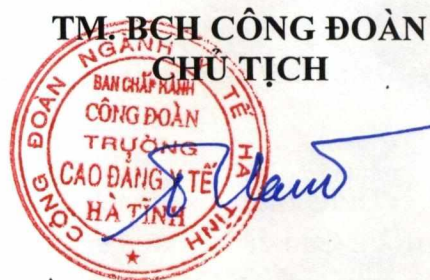 TM. BCH CÔNG ĐOÀN
CHỦ TỊCH
CÔNG ĐOÀN NGÀNH Y TẾ HÀ TĨNH
BAN CHẤP HÀNH
CÔNG ĐOÀN
TRƯỜNG
CAO ĐẲNG Y TẾ
HÀ TĨNH